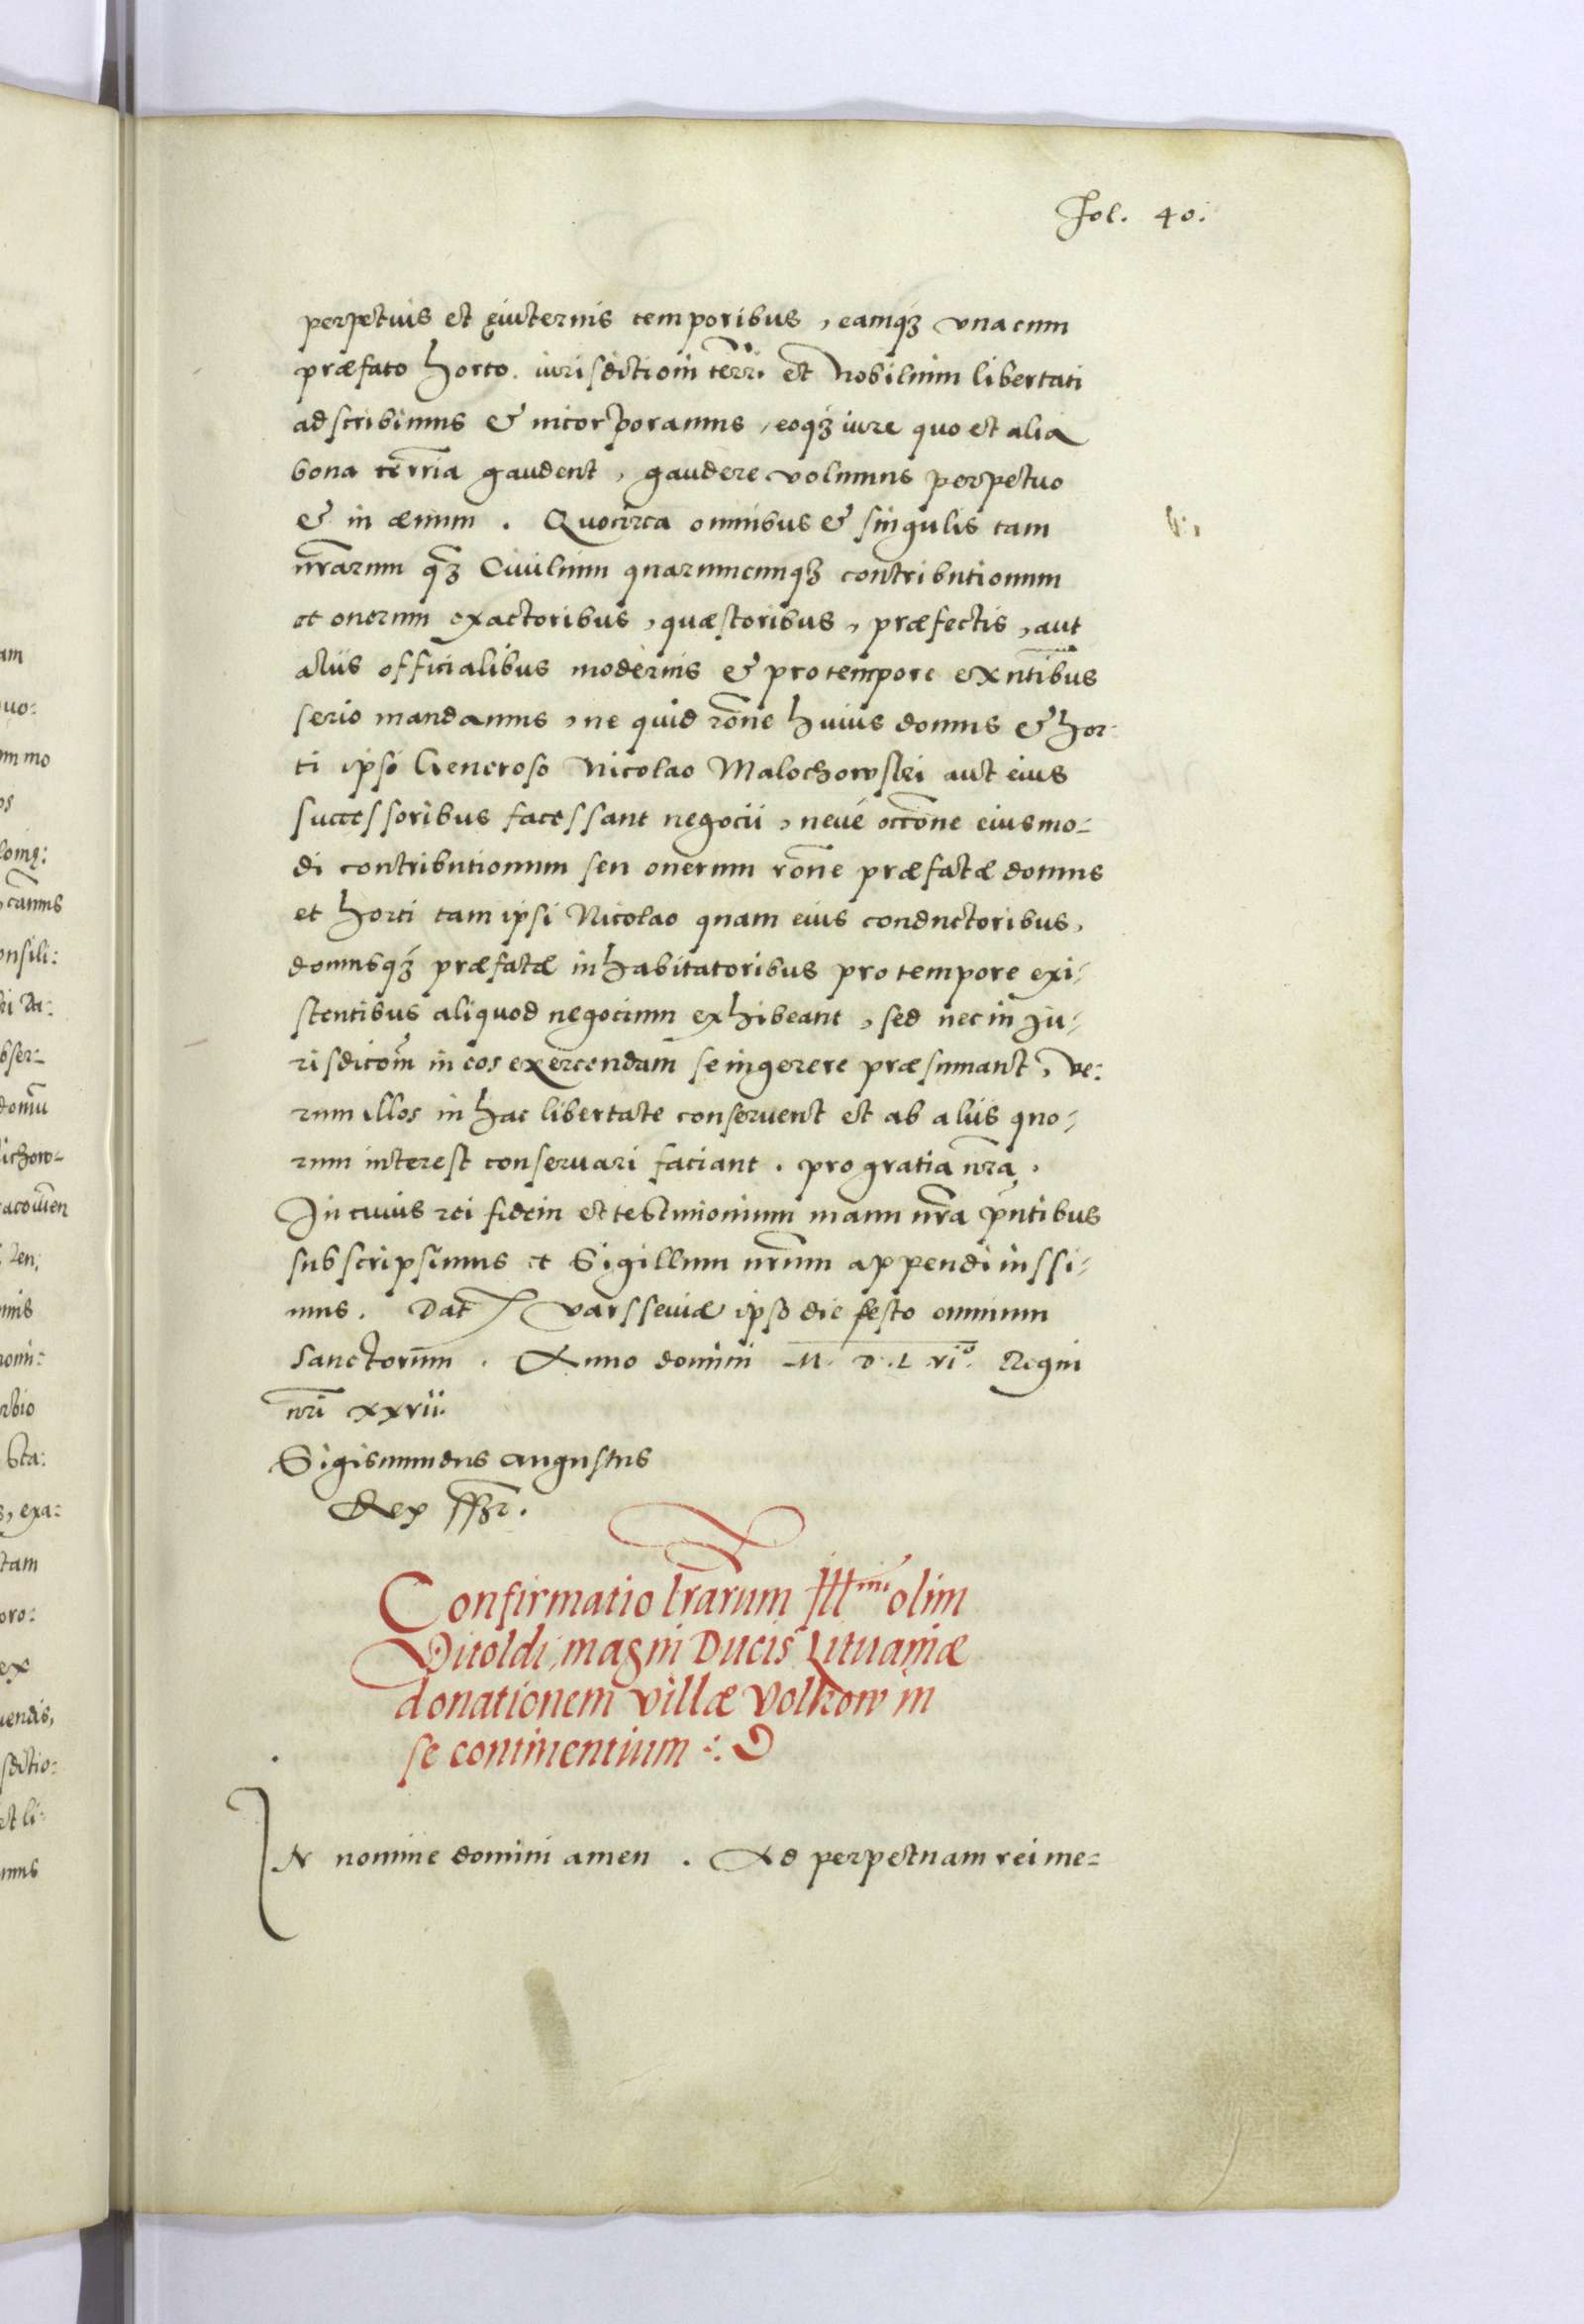 Fol. 40.
perpetuis et ęuiternis temporibus, eamqꝫ vna cum
præfato horto iurisdictioni terrī. et Nobilium libertati
adscribimus & incorporamus, eoqꝫ iure quo et alia
bona terrīa gaudent, gaudere volumus perpetuo
& in æuum. Quocirca omnibus & singulis tam
nr̄arum qꝫ Ciuilium quarumcumqꝫ contributionum
et onerum exactoribus, quæstoribus, præfectis, aut
alijs officialibus modernis & pro tempore exn̄tibus
serio mandamus, ne quid rōne huius domus & hor-
ti ipsi Generoso Nicolao Malochowski aut eius
successoribus facessant negocii, neué occōne eiusmo=
di contributionum seu onerum rōne præfatæ domus
et horti tam ipsi Nicolao quam eius conductoribus,
domusqꝫ præfatæ inhabitatoribus pro tempore exi-
stentibus aliquod negocium exhibeant, sed nec in Ju-
risdicōm in eos exercendam se ingerere præsumant, ve:
rum illos in hac libertate conseruent et ab aliis quo-
rum interest conseruari faciant. pro gratia nr̄a.
In cuius rei fidem et testimonium manu nr̄a pn̄tibus
subscripsimus et Sigillum nr̄um appendi iussi-
mus. Dat Varsseuiæ ipso die festo omnium
Sanctorum. Anno domini M. D. L vi°. Regni
nr̄i xxvii.
Sigismundus augustus
Rex ssꝫr.
Confirmatio lr̄arum Illmi olim
Vitoldi, magni Ducis Lituaniæ
donationem villæ Volkow in
se continentium
IN nomine domini amen. Ad perpetuam rei me=
am
uo:
m mo
os
lomę:
onsili:
bser=
domū
ichow-
Ten,
nis
rbio
sta:
s, exa:
tam
oro:
ex
uendis,
sdictio:
et li:
mus